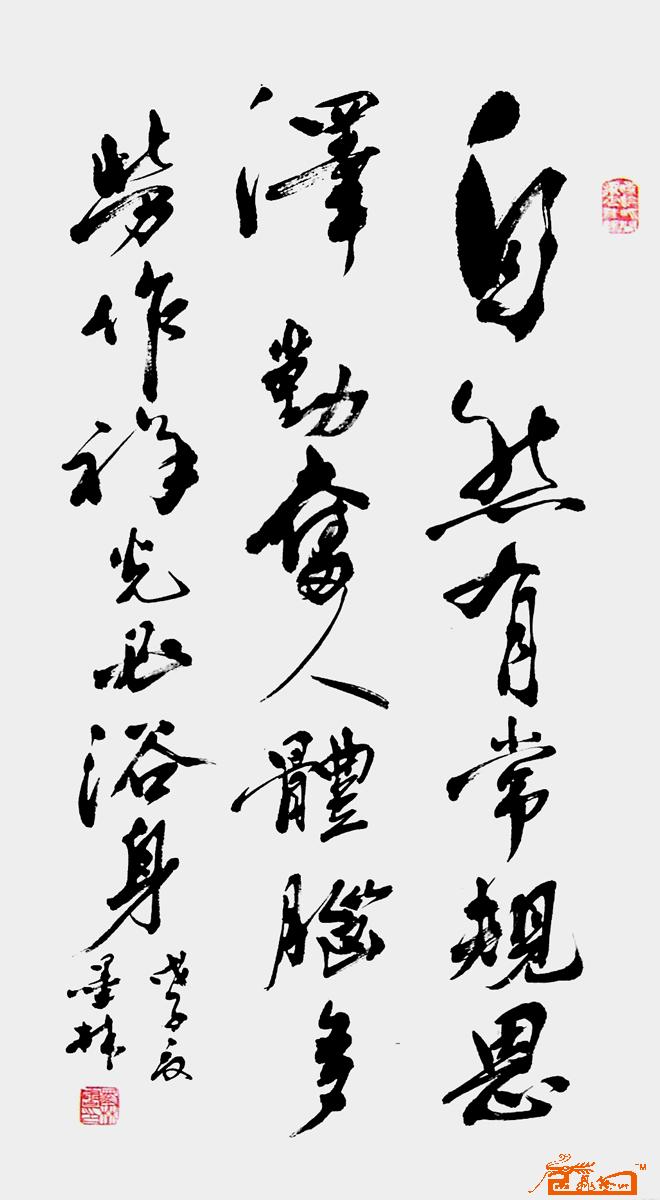 自然有常規恩
澤勤奮人體腦多
勞作祥光必浴身
戊子夏
墨林